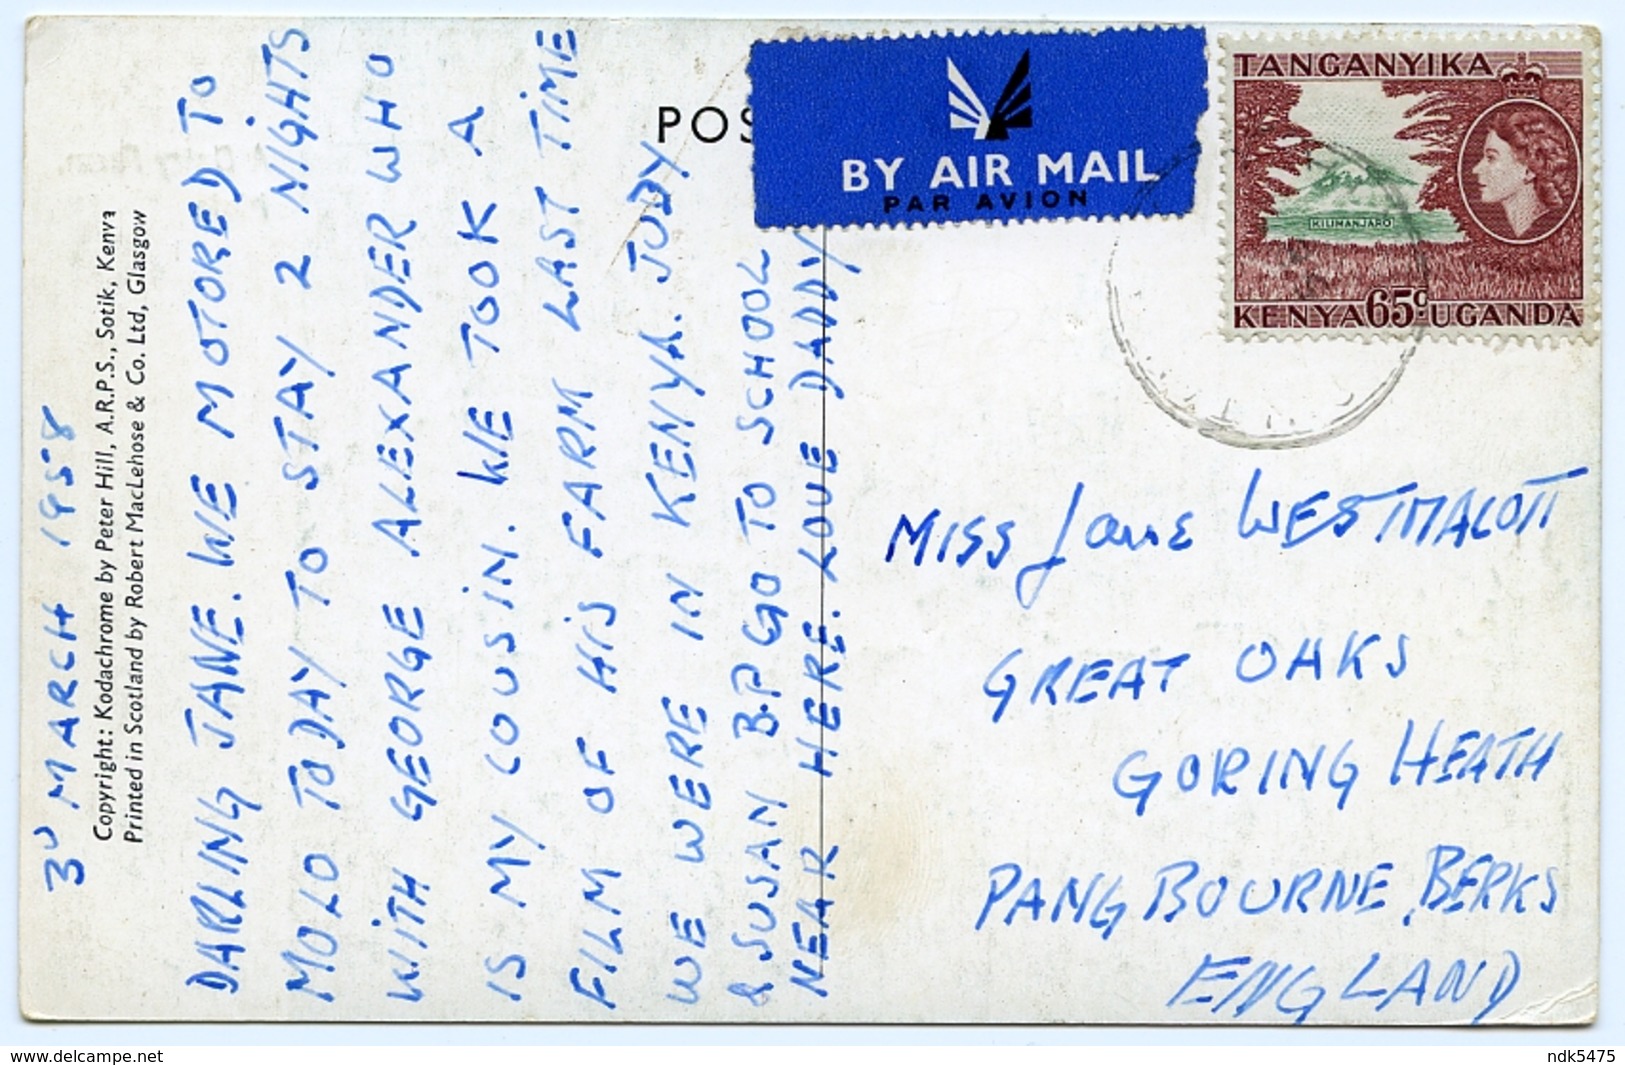 3D MARCH 1958
Copyright: Kodachrome by Peter Hill, A.R.P.S., Sotik, Kenya
Printed in Scotland by Robert MacLehose & Co. Ltd, Glasgow
DARLING JANE. WE MOTORED TO
MOLO TODAY TO STAY 2 NIGHTS
WITH GEORGE ALEXANDER WHO
IS MY COUSIN. WE TOOK A
FILM OF HIS FARM LAST TIME
WE WERE IN KENYA. JUDY
& SUSAN B.P GO TO SCHOOL
NEAR HERE. LOVE DADDY
POS
BY AIR MAIL
PAR AVION
TANGANYIKA
KILIMANJARO
KENYA 65c UGANDA
MISS Jane WESTMACOTT
GREAT OAKS
GORING HEATH
PANGBOURNE, BERKS
ENGLAND
www.delcampe.net
ndk5475